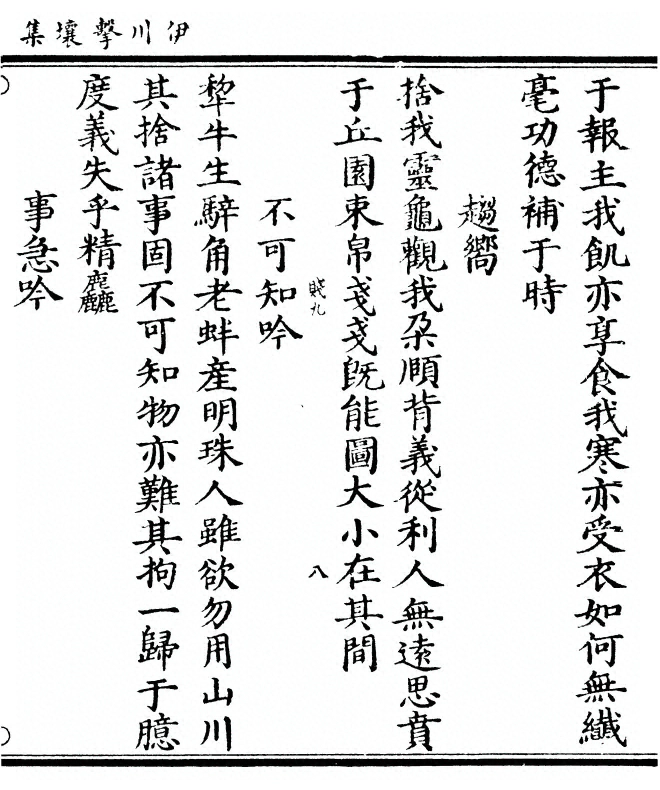 伊川擊壤集
于報主我飢亦享食我寒亦受衣如何無纎
毫功德補于時
趨嚮
捨我靈龜觀我朶頥背義從利人無逺思賁
于丘園束帛戔戔旣能圖大小在其間
賤九
八
不可知吟
犂牛生騂角老蚌産明珠人雖欲勿用山川
其捨諸事固不可知物亦難其拘一歸于臆
度義失乎精麤
事急吟